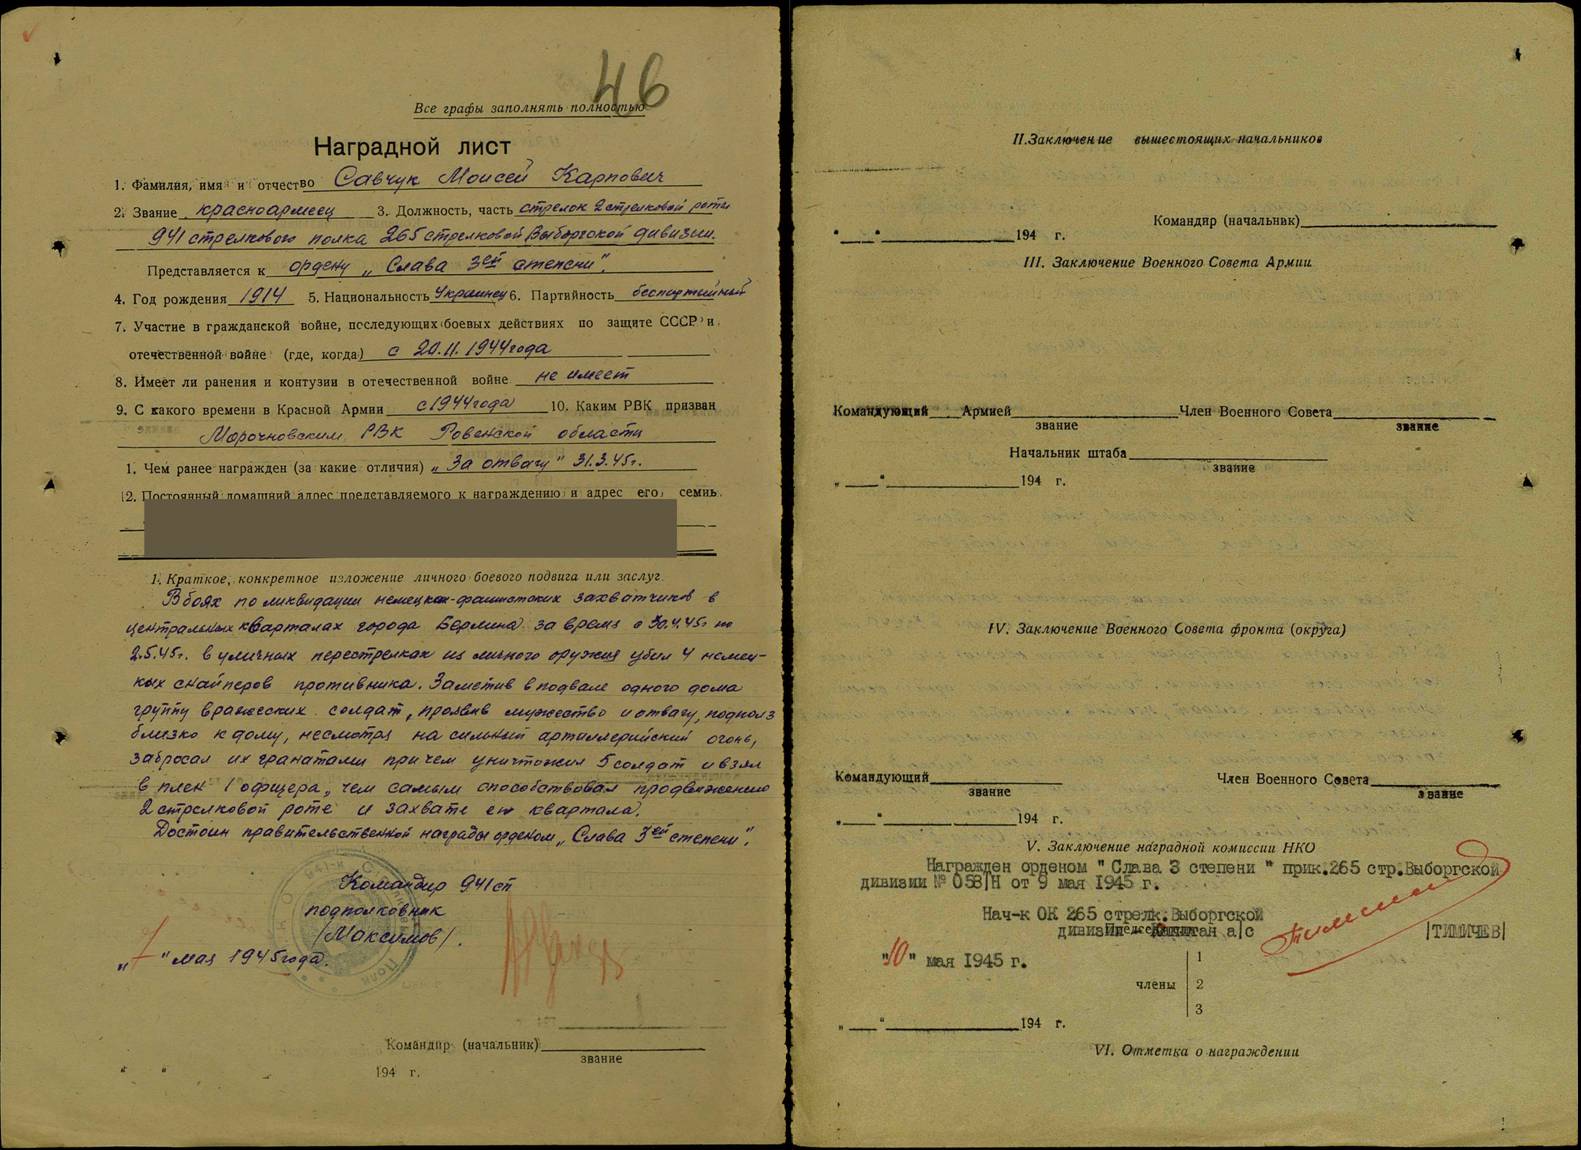 46
Все графы заполнять полностью
Наградной лист
1. Фамилия, имя и отчество Савчук Моисей Карпович
2. Звание красноармеец 3. Должность, часть стрелок 2 стрелковой роты
941 стрелкового полка 265 стрелковой Выборгской дивизии.
Представляется к ордену „Слава 3ей степени".
4. Год рождения 1914 5. Национальность Украинец 6. Партийность беспартийный
7. Участие в гражданской войне, последующих боевых действиях по защите СССР и
отечественной войне (где, когда) с 20.11.1944 года
8. Имеет ли ранения и контузии в отечественной войне не имеет
9. С какого времени в Красной Армии с 1944 года 10. Каким РВК призван
Морочновским РВК Ровенской области
1. Чем ранее награжден (за какие отличия) „За отвагу" 31.3.45г.
2. Постоянный домашний адрес представляемого к награждению и адрес его семьи
1. Краткое, конкретное изложение личного боевого подвига или заслуг
В боях по ликвидации немецко-фашистских захватчиков в
центральных кварталах города Берлина за время с 30.4.45г по
2.5.45г. в уличных перестрелках из личного оружия убил 4 немец-
ких снайперов противника. Заметив в подвале одного дома
группу вражеских солдат, проявив мужество и отвагу, подполз
близко к дому, несмотря на сильный артиллерийский огонь,
забросал их гранатами причем уничтожил 5 солдат и взял
в плен 1 офицера, чем самым способствовал продвижению
2 стрелковой роте и захвате ею квартала.
Достоин правительственной награды орденом „Слава 3ей степени".
Командир 941 сп
подполковник
/Максимов/.
„7" мая 1945 года.
Командир (начальник)
звание
" " 194 г.
II. Заключение вышестоящих начальников
Командир (начальник)
" " 194 г.
III. Заключение Военного Совета Армии
Командующий Армией Член Военного Совета
звание звание
Начальник штаба
звание
" " 194 г.
IV. Заключение Военного Совета фронта (округа)
Командующий Член Военного Совета
звание звание
" " 194 г.
V. Заключение наградной комиссии НКО
Награжден орденом "Слава 3 степени" прик.265 стр.Выборгской
дивизии № 058/Н от 9 мая 1945 г.
Нач-к ОК 265 стрелк. Выборгской
дивизии - Капитан а/с /ТИМИЧЕВ/
"10" мая 1945 г.
члены
1
2
3
" " 194 г.
VI. Отметка о награждении